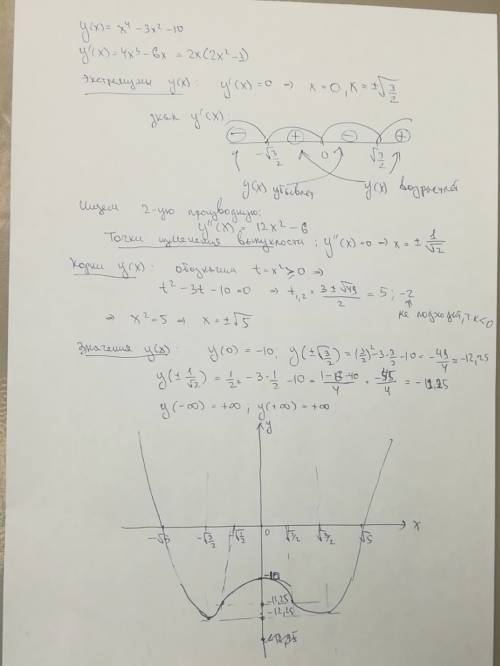 y(x) = x⁴ - 3x² - 10
y'(x) = 4x³ - 6x = 2x(2x² - 1)
Экстремумы y(x): y'(x) = 0 ⇒ x = 0, x = ±√(3/2)
знак y'(x):
- + - +
-√(3/2) 0 √(3/2)
y(x) убывает y(x) возрастает
Ищем 2-ую производную:
y''(x) = 12x² - 6
Точки изменения выпуклости: y''(x) = 0 ⇒ x = ± 1/√2
Корни y(x): обозначим t = x² ≥ 0 ⇒
t² - 3t - 10 = 0 ⇒ t₁,₂ = (3 ± √49)/2 = 5; -2
не подходит, т.к < 0
⇒ x² = 5 ⇒ x = ±√5
Значения y(x): y(0) = -10, y(±√(3/2)) = (3/2)² - 3·3/2 - 10 = -49/4 = -12,25
y(±1/√2) = 1/2² - 3·1/2 - 10 = /4 = -45/4 = -11,25
y(-∞) = +∞; y(+∞) = +∞
y
-√5 -√(3/2) -√(1/2) 0 √(1/2) √(3/2) √5 x
-10
-11,25
-12,25